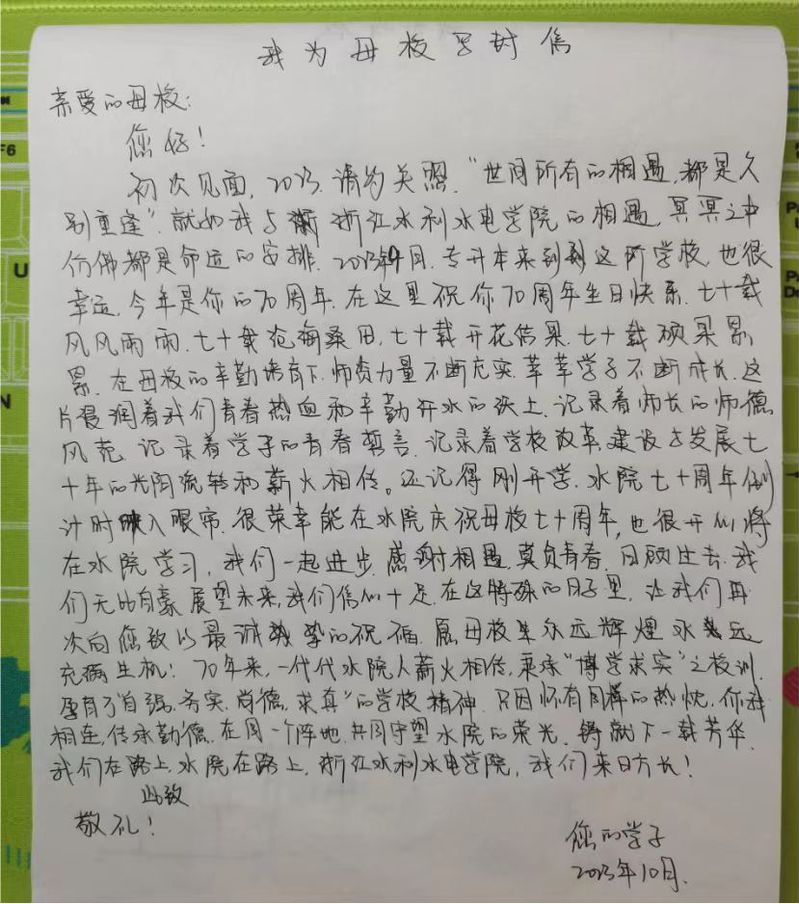 我为母校写封信
亲爱的母校：
您好！
初次见面，2023，请多关照。“世间所有的相遇，都是久
别重逢”。就如我与浙江水利水电学院的相遇，冥冥之中
仿佛都是命运的安排。2023年9月，专升本来到这所学校，也很
幸运，今年是你的70周年，在这里祝你70周年生日快乐。七十载
风风雨雨，七十载沧海桑田，七十载开花结果，七十载硕果累
累。在母校的辛勤培育下，师资力量不断充实，莘莘学子不断成长，这
片浸润着我们青春热血和辛勤汗水的沃土，记录着师长的师德
风范，记录着学子的青春誓言，记录着学校改革、建设与发展七
十年的光阴流转和薪火相传。还记得刚开学，水院七十周年倒
计时映入眼帘，很荣幸能在水院庆祝母校七十周年，也很开心将
在水院学习，我们一起进步，感谢相遇，莫负青春。回顾过去，我
们无比自豪，展望未来，我们信心十足，在这特殊的日子里，让我们再
次向您致以最诚挚的祝福，愿母校生永远辉煌永远
充满生机！70年来，一代代水院人薪火相传，秉承“博学求实”之校训，
孕育了“自强、务实、尚德、求真”的学校精神，只因怀有同样的热忱，你我
相连，传承勤德，在同一个阵地，共同守望水院的荣光，铸就下一载芳华，
我们在路上，水院在路上，浙江水利水电学院，我们来日方长！
此致
敬礼！
您的学子
2023年10月.
F6
U
N